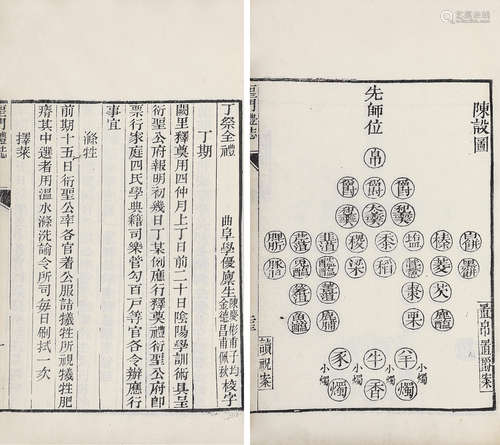 陳設圖
先師位
帛
爵 爵 爵
和羹 太羹 和羹
菁菹 韭菹 稷 黍 榛
醓醢 粱 稻 菱 黑餅
棗 芡
魚醢 栗
豕 牛 羊
小燭 小燭
燭 香 燭
置帛置爵案
讀祝案
丁祭全禮
曲阜學優廩生 金德昌甫佩秋 校字
丁期
闕里釋奠用四仲月上丁日前二十日陰陽學訓術具呈
衍聖公府報明初幾日丁某例應行釋奠禮衍聖公府即
票行家庭四氏學典籍司樂管勾百戶等官各令辦應行
事宜
滌牲
前期十五日衍聖公率各官着公服詣犧牲所視犧牲肥
瘠其中選者用溫水滌洗諭令所司每日刷拭一次
擇菜
聖門禮誌